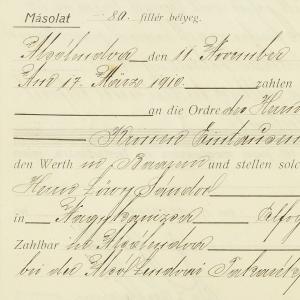 Másolat — 80. fillér bélyeg.
Alsólendva den 11. November
Am 17. März 1910. zahlen
an die Ordre des Herrn
Kronen Eintausen
den Werth in Baarem und stellen solc
Herrn Löwy Sándor
in Nagykanizsa
Zahlbar in Alsólendva
bei der Alsólendvai Takarék